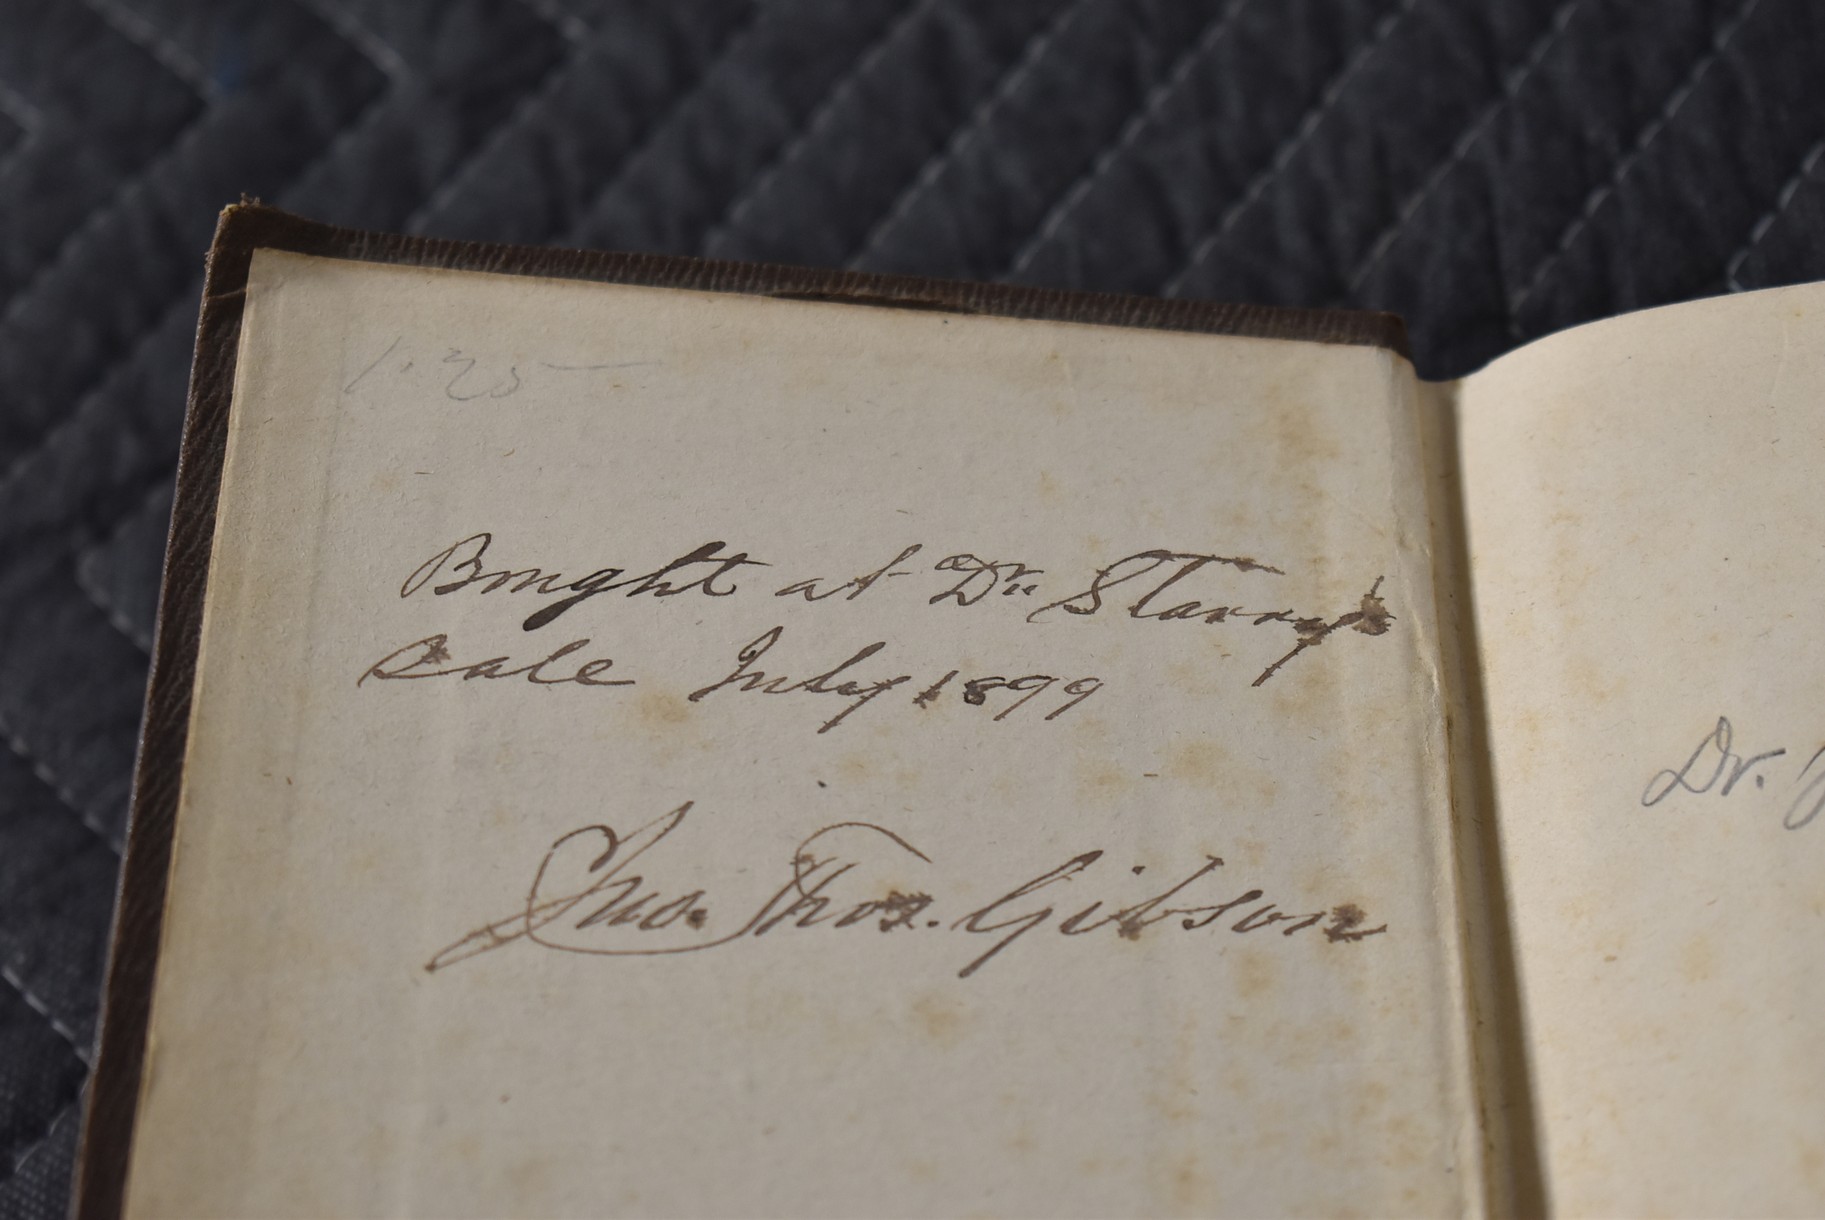 1.25
Bought at Dr. Starry's
Sale July 1899
Jno. Thos. Gibson
Dr.